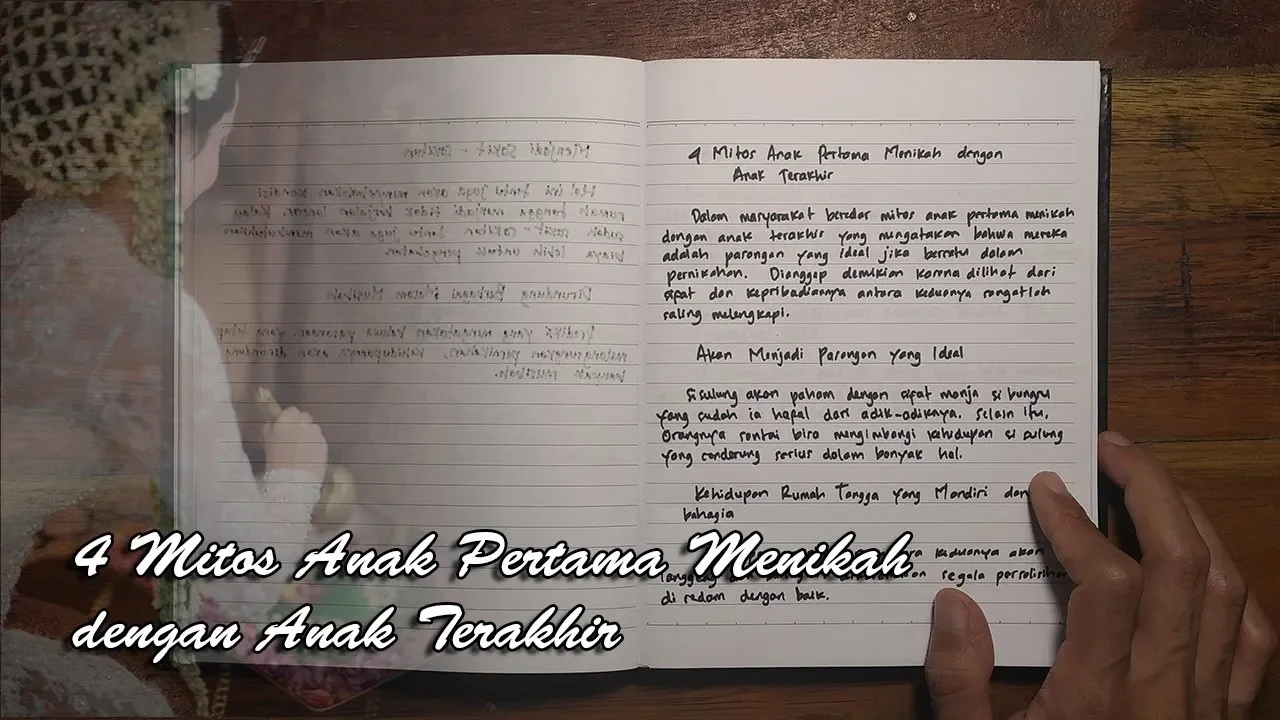 Menjadi Sakit - sakitan
Hal ini tentu juga akan menyebabkan kondisi
rumah tangga menjadi tidak berjalan lancar. Kalau
sudah sakit - sakitan tentu juga akan membutuhkan
biaya lebih untuk pengobatan
Dirundung Berbagai Macam Musibah
Prediksi yang mengatakan bahwa pasangan yang tetap
melangsungkan pernikahan, kehidupannya akan dirundung
banyak musibah.
4 Mitos Anak Pertama Menikah dengan
Anak Terakhir
Dalam masyarakat beredar mitos anak pertama menikah
dengan anak terakhir yang mengatakan bahwa mereka
adalah pasangan yang ideal jika bersatu dalam
pernikahan. Dianggap demikian karena dilihat dari
sifat dan kepribadiannya antara keduanya sangatlah
saling melengkapi.
Akan Menjadi Pasangan yang Ideal
Si sulung akan paham dengan sifat manja si bungsu
yang sudah ia hafal dari adik-adiknya. Selain itu,
Orangnya santai bisa mengimbangi kehidupan si sulung
yang cenderung serius dalam banyak hal.
Kehidupan Rumah Tangga yang Mandiri dan
bahagia
keduanya akan
segala perselisihan
di redam dengan baik.
4 Mitos Anak Pertama Menikah
dengan Anak Terakhir